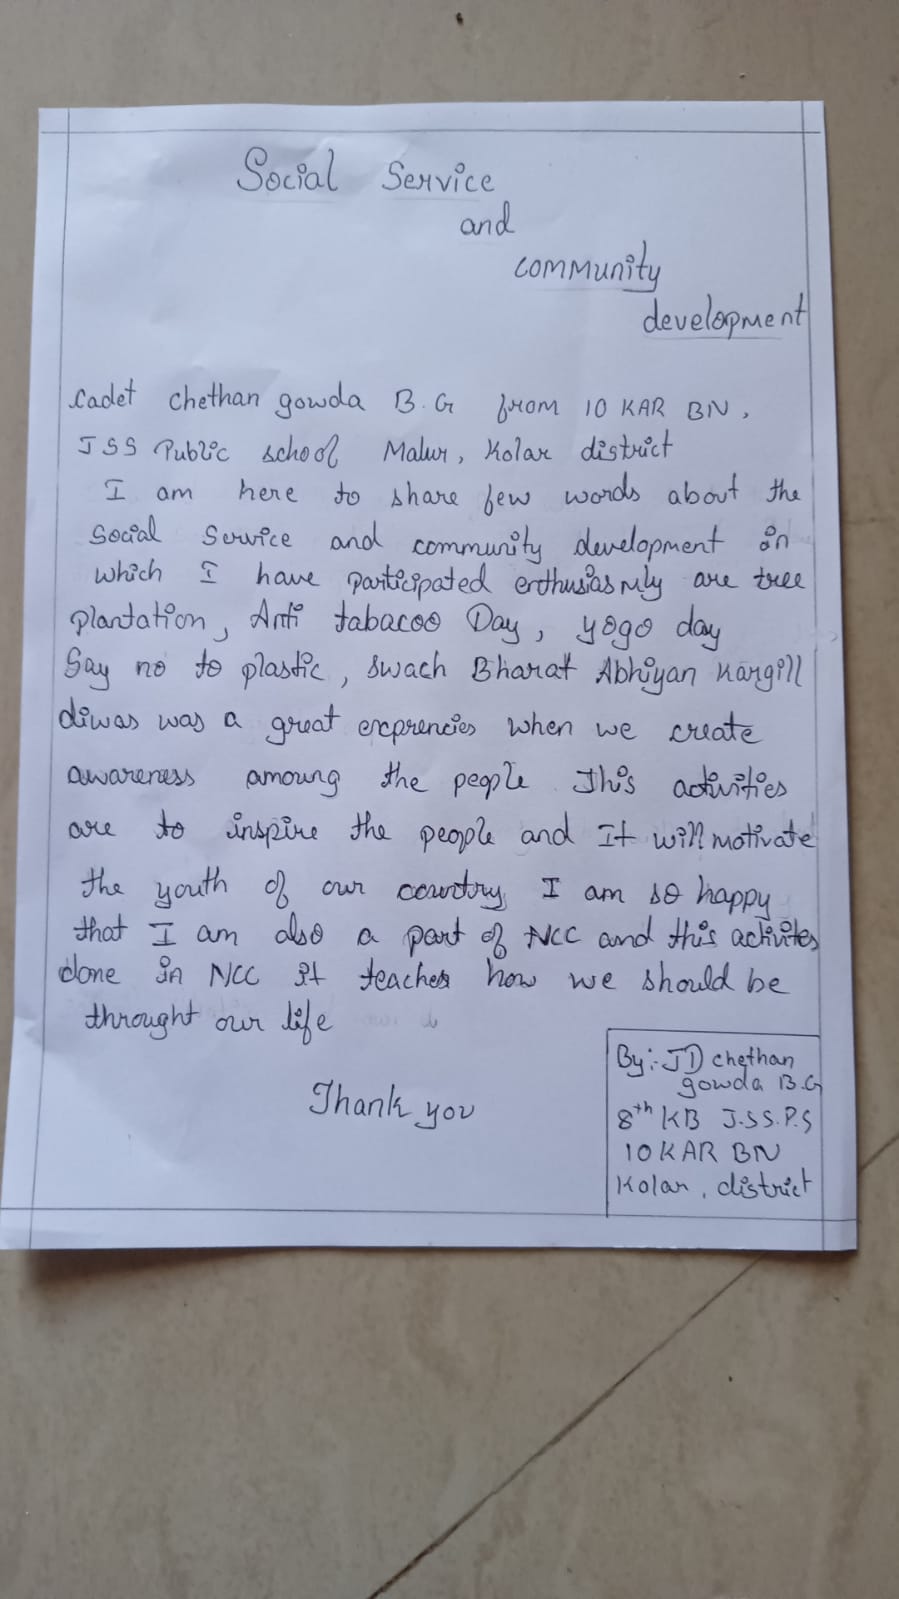 Social Service
and
community
development
Cadet chethan gowda B.G from 10 KAR BN,
JSS Public school Malur, Kolar district
I am here to share few words about the
Social Service and community development in
which I have participated enthusiasmly are tree
plantation, Anti tabacoo Day, yogo day
Say no to plastic, swach Bharat Abhiyan Kargill
diwas was a great exprencies when we create
awareness amoung the people This activities
are to inspire the people and It will motivate
the youth of our country I am so happy
that I am also a part of NCC and this activites
done in NCC it teaches how we should be
throught our life
Thank you
By:- JD chethan
gowda B.G
8th KB J.S.S.P.S
10 KAR BN
Kolar, district